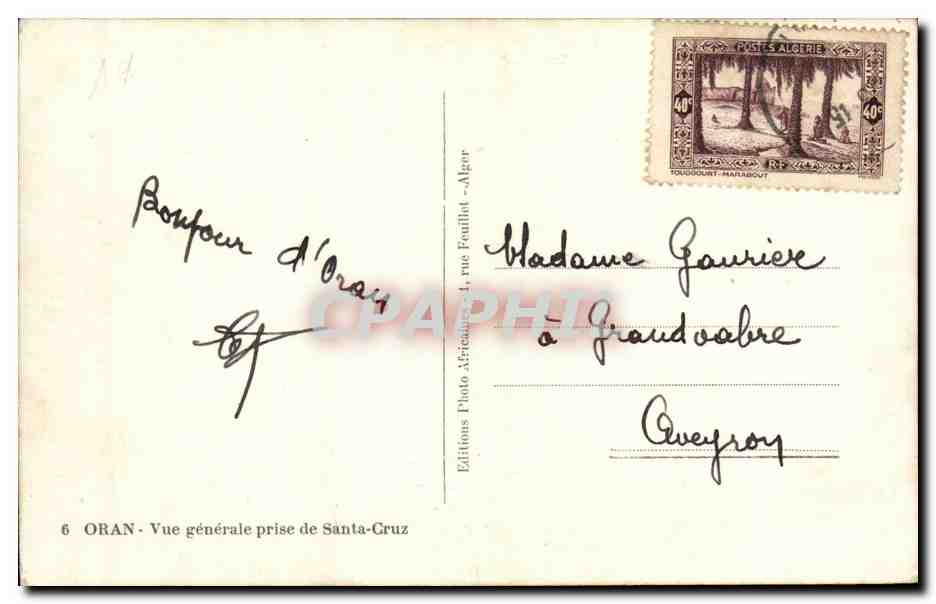 POSTES ALGERIE
40c 40c
RF
TOUGGOURT-MARABOUT
Bonjour d'Oran
Madame Gaurière
à Grandvabre
Aveyron
Editions Photo Africaines - 1, rue Feuillet - Alger
CPAPHIL
6 ORAN - Vue générale prise de Santa-Cruz